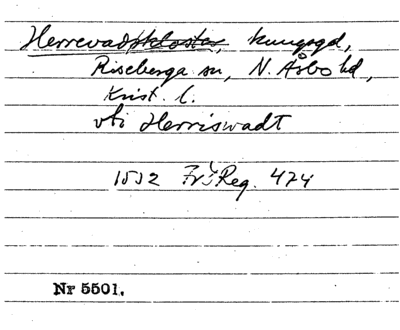 Herrevadskloster, kungsgd,
Riseberga sn, N. Åsbo hd,
Krist. l.
vti Herriswadt
1532 Fr I Reg. 474
Nr 5501.